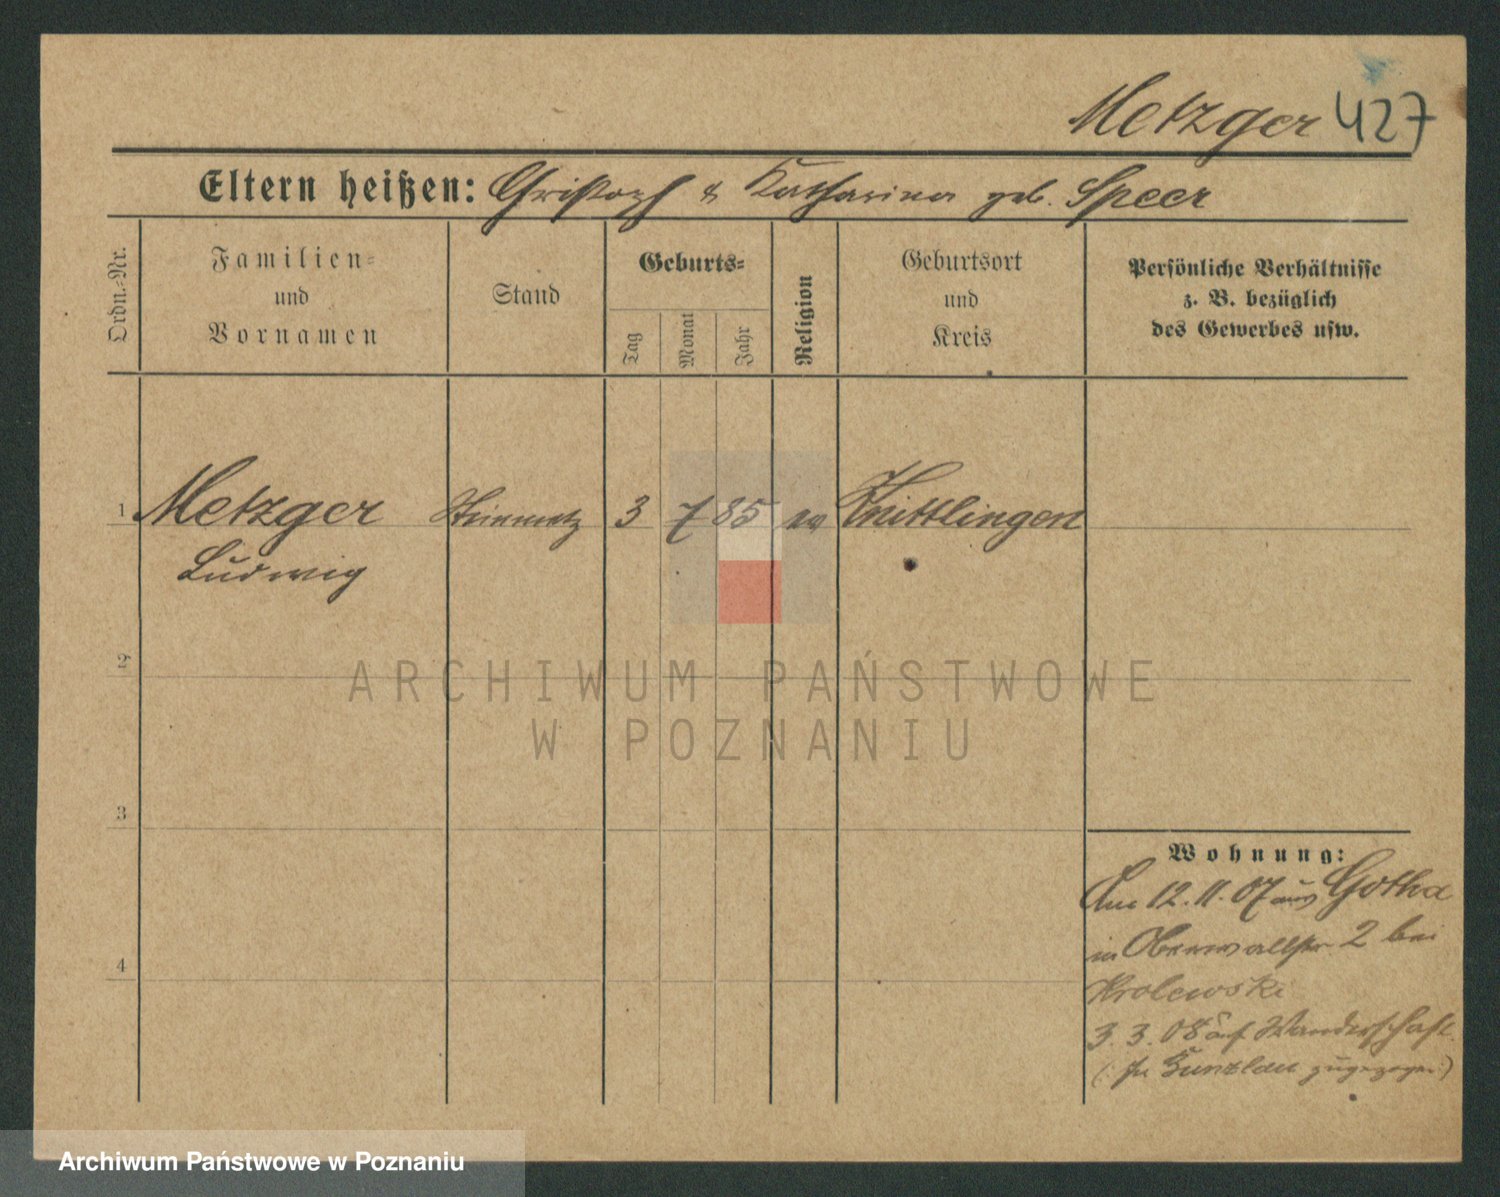 Metzger 427
Eltern heißen: Christoph & Katharina geb. Speer
Ordn.-Nr.
Familien-
und
Vornamen
Stand
Geburts-
Tag
Monat
Jahr
Religion
Geburtsort
und
Kreis
Persönliche Verhältnisse
z. B. bezüglich
des Gewerbes usw.
1 Metzger Steinmetz 3 7 85 ev Knittlingen
Ludwig
2
3
4
Wohnung:
Am 12.11.07 aus Gotha
in Oberwallstr. 2 bei
Krolewski
3.3.08 auf Wanderschaft.
(: In Bunzlau zugezogen :)
ARCHIWUM PAŃSTWOWE
W POZNANIU
Archiwum Państwowe w Poznaniu